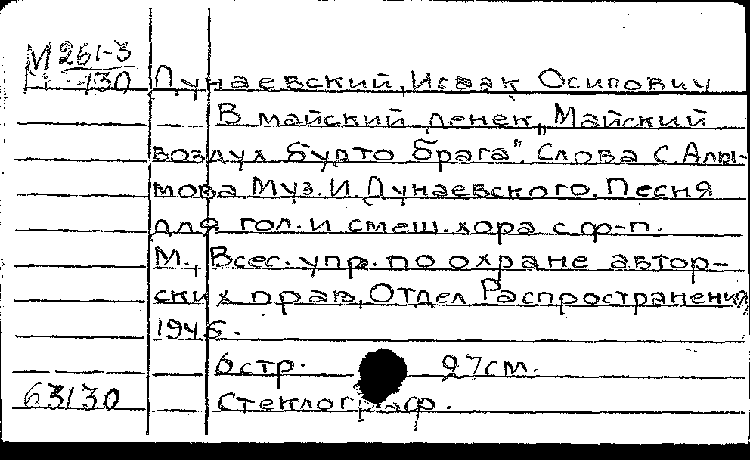 М 261-3
130 Дунаевский, Исаак Осипович
В майский денек „Майский
воздух будто брага". Слова С. Алы-
мова Муз. И. Дунаевского. Песня
для гол. и смеш. хора с ф-п.
М., Всес. упр. по охране автор-
ских прав, Отдел Распространения
1946.
6 стр. 27 см.
63130 Стеклограф.